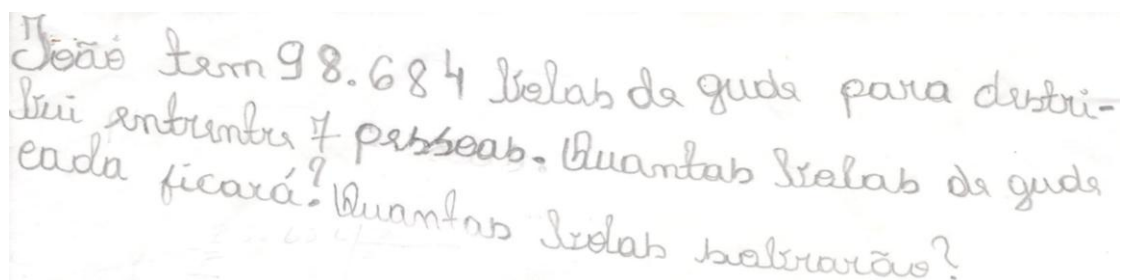 João tem 98.684 bolas de gude para distri-
bui entrentre 7 pessoas. Quantas bolas de gude
cada ficará? Quantas bolas sobrarão?